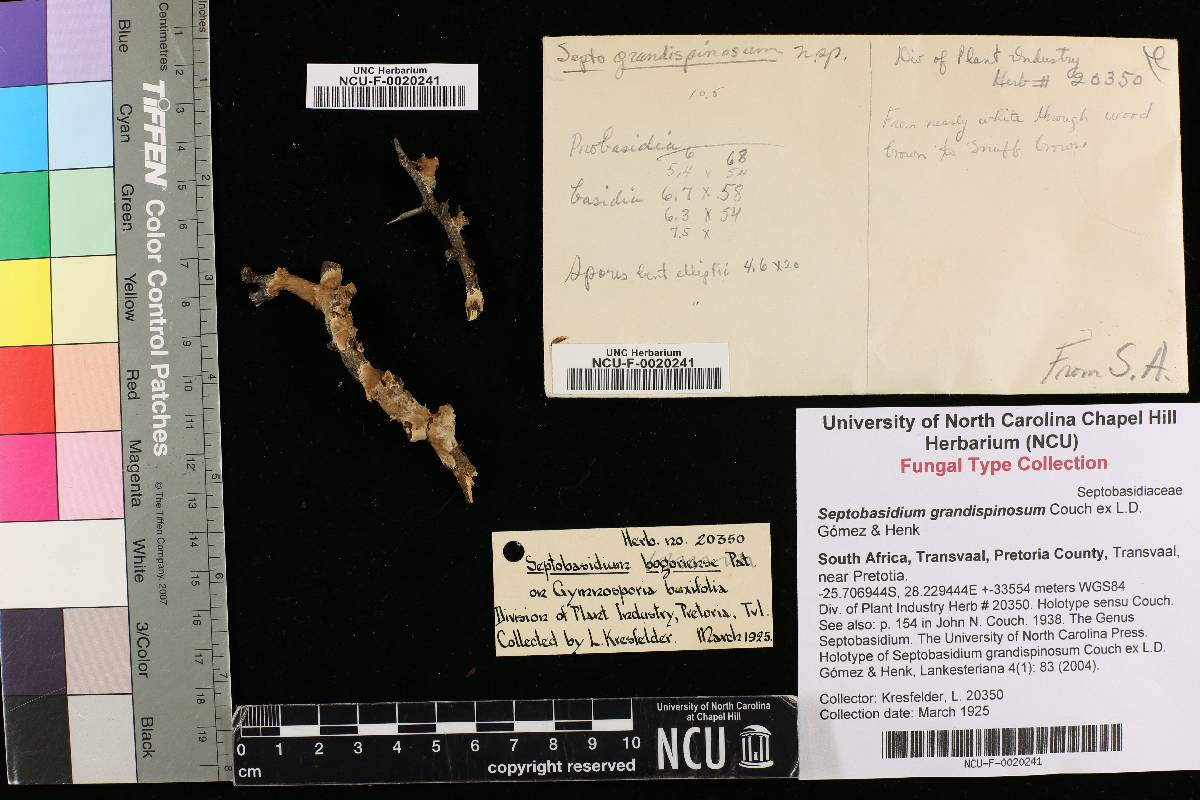 Centimetres
Inches
Blue
Cyan
Green
Yellow
Red
Magenta
White
3/Color
Black
TIFFEN Color Control Patches
© The Tiffen Company, 2007
UNC Herbarium
NCU-F-0020241
Septo grandispinosum n.sp.
10.5
Probasidia
6 68
5.4 x 54
basidia 6.7 x 58
6.3 x 54
7.5 x
Spores bent elliptic 4.6 x 20
Div of Plant Industry
Herb # 20350
From nearly white through wood
brown to snuff brown
From S.A.
UNC Herbarium
NCU-F-0020241
Herb. no. 20350
Septobasidium bogoriense Pat.
on Gymnosporia buxifolia
Division of Plant Industry, Pretoria, Tvl.
Collected by L. Kresfelder. March 1925.
University of North Carolina Chapel Hill
Herbarium (NCU)
Fungal Type Collection
Septobasidiaceae
Septobasidium grandispinosum Couch ex L.D.
Gómez & Henk
South Africa, Transvaal, Pretoria County, Transvaal,
near Pretotia.
-25.706944S, 28.229444E +-33554 meters WGS84
Div. of Plant Industry Herb # 20350. Holotype sensu Couch.
See also: p. 154 in John N. Couch. 1938. The Genus
Septobasidium. The University of North Carolina Press.
Holotype of Septobasidium grandispinosum Couch ex L.D.
Gómez & Henk, Lankesteriana 4(1): 83 (2004).
Collector: Kresfelder, L. 20350
Collection date: March 1925
NCU-F-0020241
0 1 2 3 4 5 6 7 8 9 10
cm
copyright reserved
University of North Carolina
at Chapel Hill
NCU